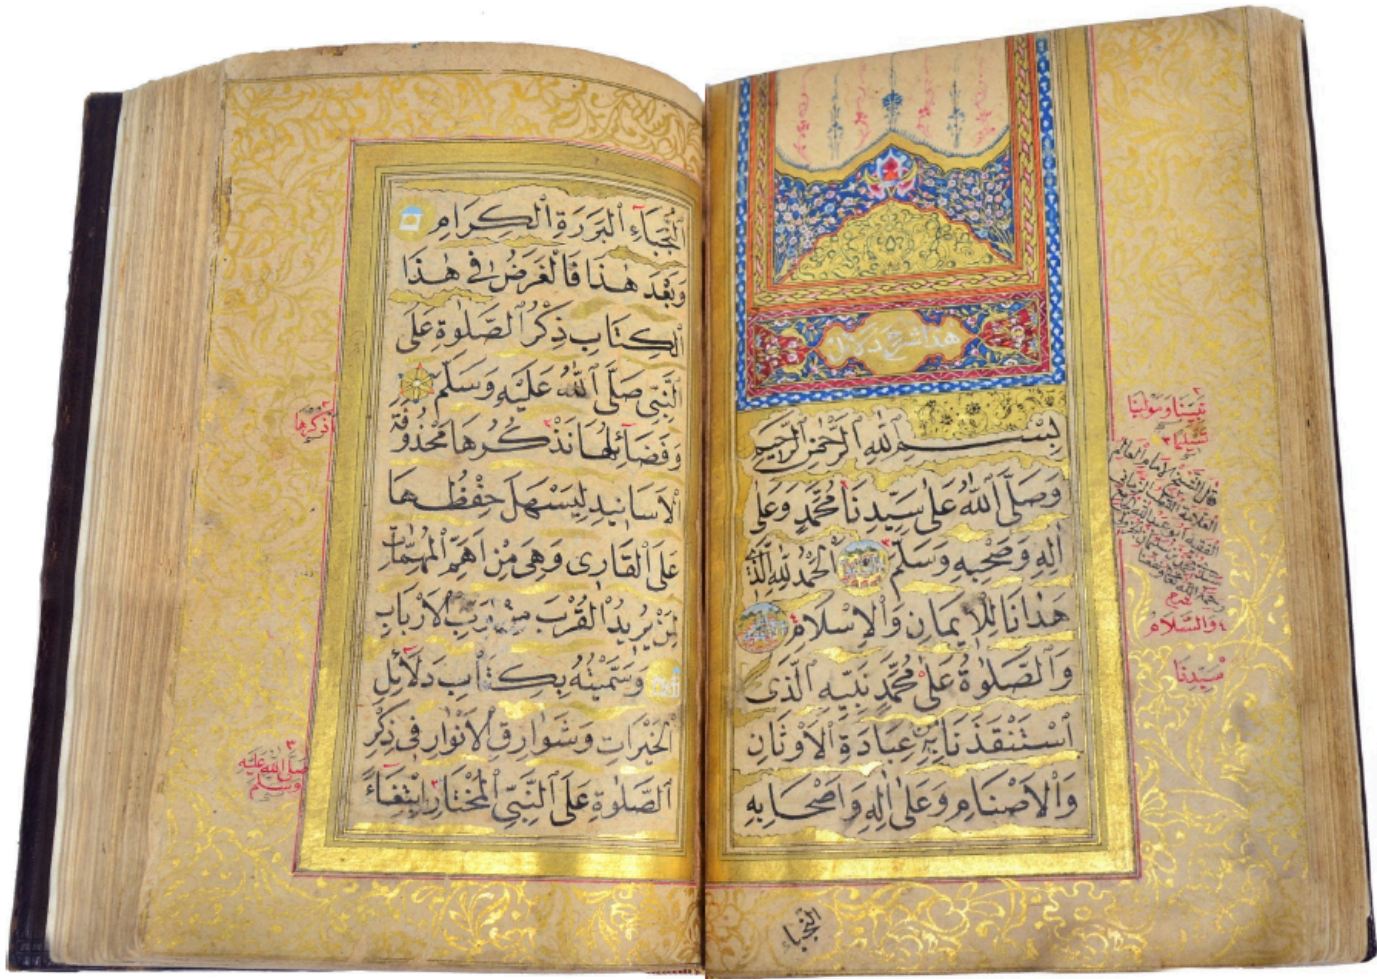 هذا شرح دلائل
بِسْمِ اللّٰهِ الرَّحْمٰنِ الرَّحِيمِ
وَصَلَّى اللّٰهُ عَلٰى سَيِّدِنَا مُحَمَّدٍ وَعَلٰى
اٰلِهِ وَصَحْبِهِ وَسَلَّمَ اَلْحَمْدُ لِلّٰهِ الَّذِى
هَدَانَا لِلْاِيمَانِ وَالْاِسْلَامِ
وَالصَّلٰوةُ عَلٰى مُحَمَّدٍ نَبِيِّهِ الَّذِى
اسْتَنْقَذَنَا بِهِ مِنْ عِبَادَةِ الْاَوْثَانِ
وَالْاَصْنَامِ وَعَلٰى اٰلِهِ وَاَصْحَابِهِ
النجباء
نَبِيِّنَا وَمَوْلٰينَا
تَسْلِيمًا
قال الشيخ الامام العالم
وَالسَّلَامُ
سَيِّدِنَا
النُّجَبَاءِ الْبَرَرَةِ الْكِرَامِ
وَبَعْدَ هٰذَا فَالْغَرَضُ فِى هٰذَا
الْكِتَابِ ذِكْرُ الصَّلٰوةِ عَلَى
النَّبِىِّ صَلَّى اللّٰهُ عَلَيْهِ وَسَلَّمَ
وَفَضَائِلِهَا نَذْكُرُهَا مَحْذُوفَةَ
الْاَسَانِيدِ لِيَسْهَلَ حِفْظُهَا
عَلَى الْقَارِى وَهِىَ مِنْ اَهَمِّ الْمُهِمَّاتِ
لِمَنْ يُرِيدُ الْقُرْبَ مِنْ رَبِّ الْاَرْبَابِ
وَسَمَّيْتُهُ بِكِتَابِ دَلَائِلِ
الْخَيْرَاتِ وَشَوَارِقِ الْاَنْوَارِ فِى ذِكْرِ
الصَّلٰوةِ عَلَى النَّبِىِّ الْمُخْتَارِ ابْتِغَاءً
اذكرها
صَلَّى اللّٰهُ عَلَيْهِ
وَسَلَّمَ